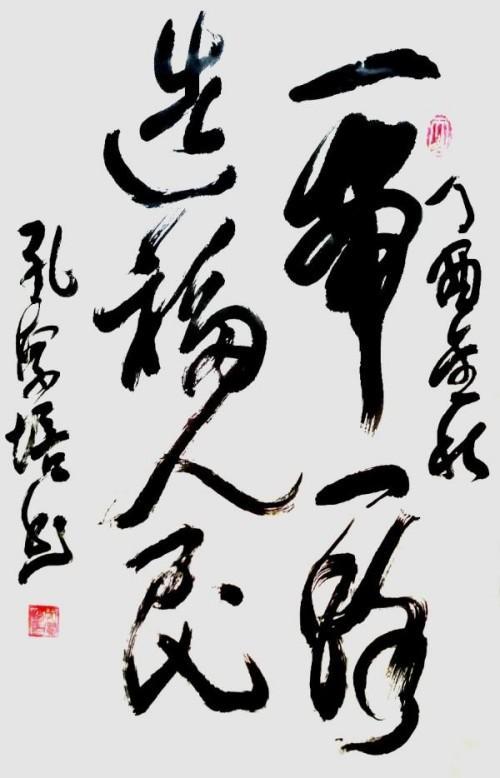 丁酉金秋
一带一路
造福人民
孔 培书